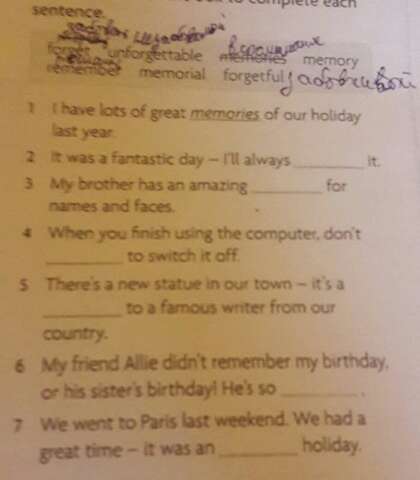 to complete each
sentence.
forget unforgettable memories memory
remember memorial forgetful
1 I have lots of great memories of our holiday
last year.
2 It was a fantastic day – I'll always ________ it.
3 My brother has an amazing ________ for
names and faces.
4 When you finish using the computer, don't
________ to switch it off.
5 There's a new statue in our town – it's a
________ to a famous writer from our
country.
6 My friend Allie didn't remember my birthday,
or his sister's birthday! He's so ________ .
7 We went to Paris last weekend. We had a
great time – it was an ________ holiday.